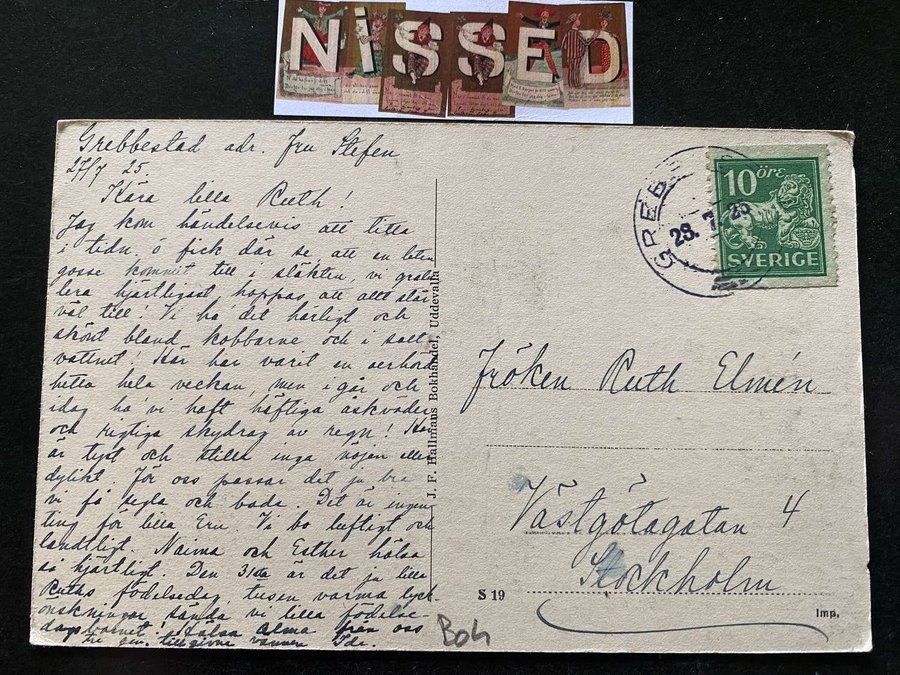 NiSSED
Grebbestad adr. Fru Stefen
27/7 25.
Kära lilla Ruth!
Jag kom händelsevis att titta
i tidn. o fick där se att en liten
gosse kommit till i släkten, vi gratu
lera hjärtligast hoppas att allt står
väl till! Vi ha det härligt och
skönt bland kobbarne och i salt
vattnet! Här har varit en oerhörd
hetta hela veckan, men i går och
idag ha vi haft häftiga åskväder
och rigtiga skydrag av regn! Här
är tyst och stilla inga nöjen eller
dylikt. För oss passar det ju bra
vi få segla och bada. Det är ingen
ting för lilla Eru. Vi bo luftigt och
landtligt. Naima och Esther hälsa
så hjärtligt. Den 31sta är det ju lilla
Ruths födelsedag tusen varma lyck
önskningar sända vi lilla födelse
dagsbarnet! Hälsa Alma från oss
tillgivna vännen Ida.
J. F. Hallmans Bokhandel, Uddevalla
GREB
28. 7. 25
10 ÖRE
SVERIGE
Fröken Ruth Elmén
Västgötagatan 4
Stockholm
S 19
Imp.
Boh